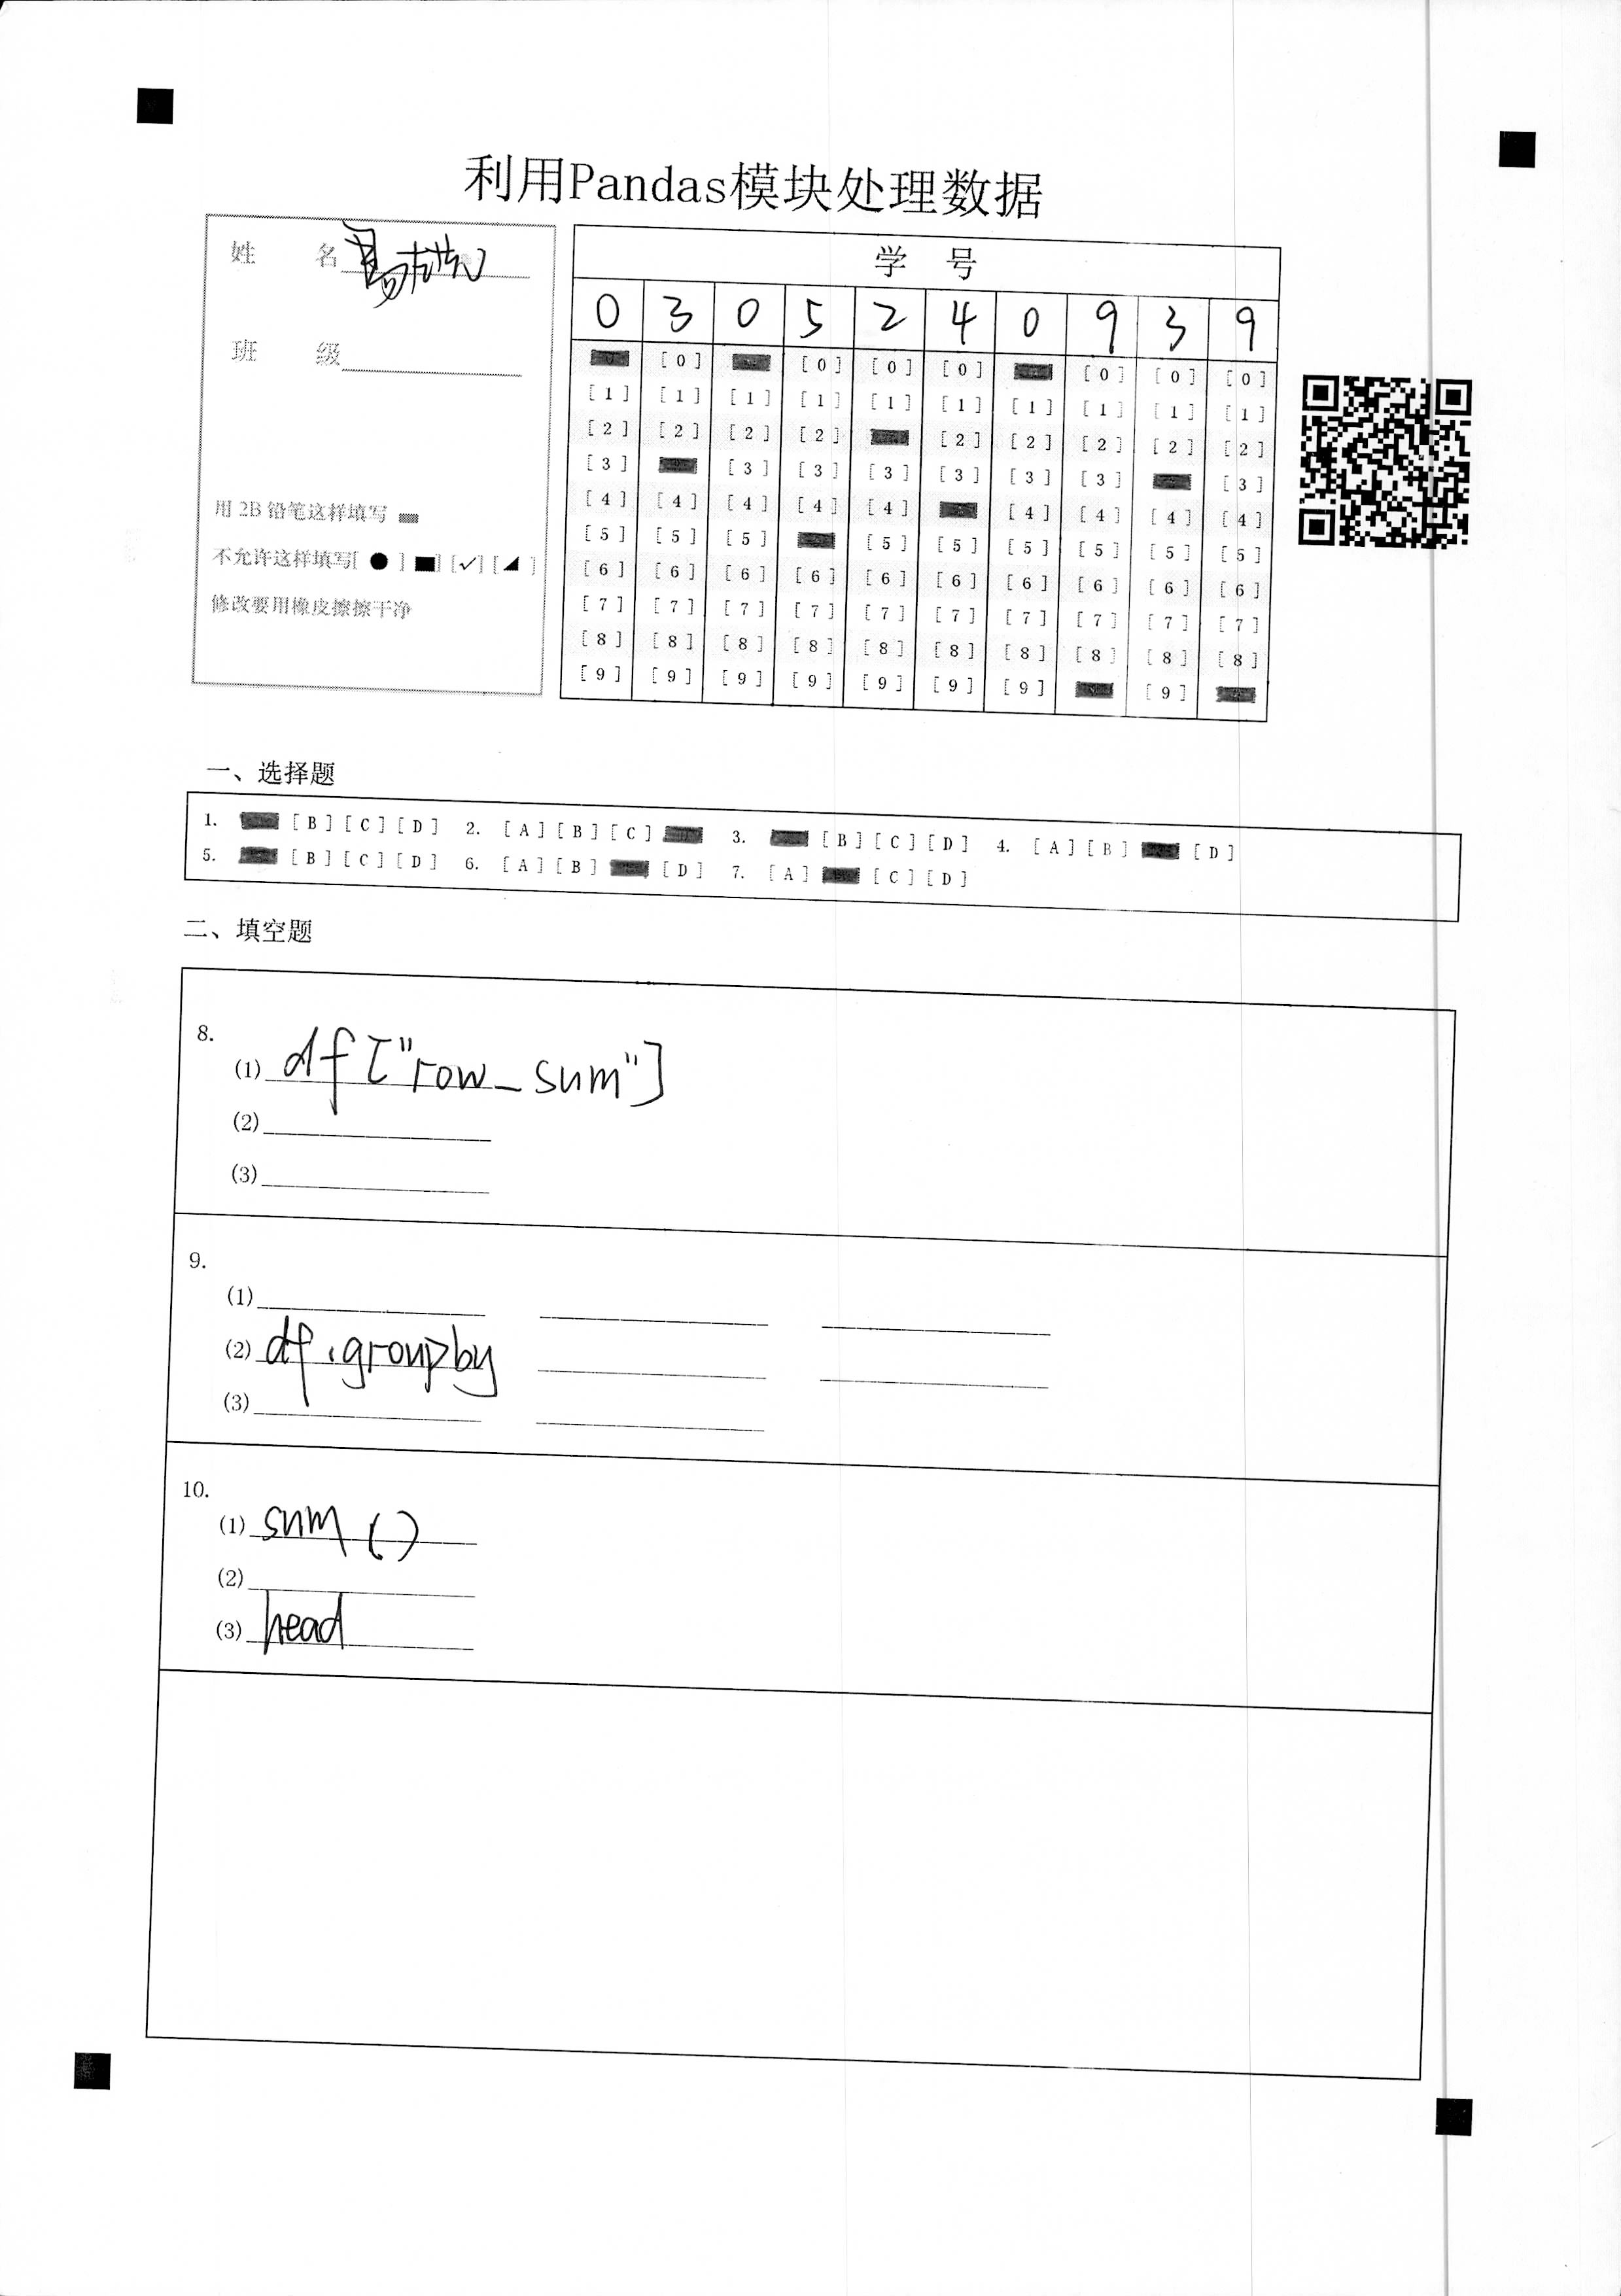 利用Pandas模块处理数据
姓 名
班 级
用 2B 铅笔这样填写
不允许这样填写[ ● ] ■] [✓] [◢ ]
修改要用橡皮擦擦干净
学 号
0 3 0 5 2 4 0 9 3 9
[0] [0] [0] [0] [0] [0] [0]
[1] [1] [1] [1] [1] [1] [1] [1] [1] [1]
[2] [2] [2] [2] [2] [2] [2] [2] [2]
[3] [3] [3] [3] [3] [3] [3] [3]
[4] [4] [4] [4] [4] [4] [4] [4] [4]
[5] [5] [5] [5] [5] [5] [5] [5] [5]
[6] [6] [6] [6] [6] [6] [6] [6] [6] [6]
[7] [7] [7] [7] [7] [7] [7] [7] [7] [7]
[8] [8] [8] [8] [8] [8] [8] [8] [8] [8]
[9] [9] [9] [9] [9] [9] [9] [9]
一、选择题
1. [B] [C] [D] 2. [A] [B] [C] 3. [B] [C] [D] 4. [A] [B] [D]
5. [B] [C] [D] 6. [A] [B] [D] 7. [A] [C] [D]
二、填空题
8.
(1) df["row_sum"]
(2)
(3)
9.
(1)
(2) df.groupby
(3)
10.
(1) sum()
(2)
(3) head